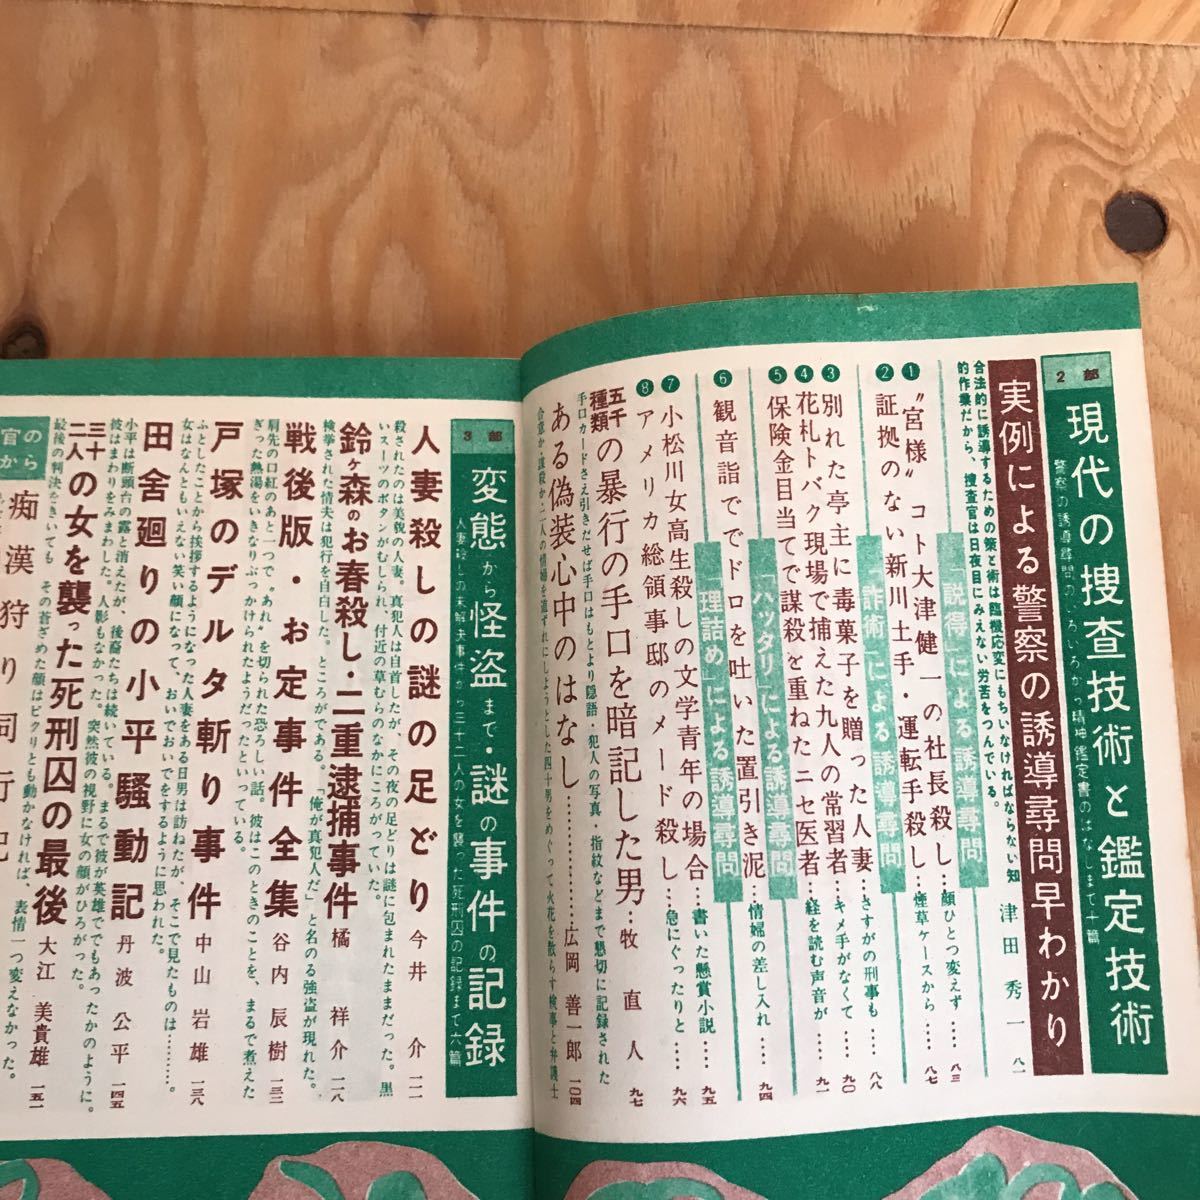 2部
現代の捜査技術と鑑定技術
実例による警察の誘導尋問早わかり 津田秀一 八一
合法的に誘導するための策と術は臨機応変にもちいなければならない知
的作業だから、捜査官は日夜目にみえない労苦をつんでいる。
「説得」による誘導尋問
❶〝宮様〟コト大津健一の社長殺し…顔ひとつ変えず…… 八三
❷証拠のない新川土手・運転手殺し…煙草ケースから…… 八七
「詐術」による誘導尋問
❸別れた亭主に毒菓子を贈った人妻…さすがの刑事も…… 八八
❹花札トバク現場で捕えた九人の常習者…キメ手がなくて…… 九〇
❺保険金目当てで謀殺を重ねたニセ医者…経を読む声が…… 九一
「ハッタリ」による誘導尋問
❻観音詣ででドロを吐いた置引き泥…情婦の差し入れ…… 九四
「理詰め」による誘導尋問
❼小松川女高生殺しの文学青年の場合…書いた懸賞小説…… 九五
❽アメリカ総領事邸のメード殺し…急にぐったりと…… 九六
五千種類の暴行の手口を暗記した男…牧直人 九七
手口カードさえ引きだせば手口はもとより隠語・犯人の写真・指紋などまで懇切に記録された
ある偽装心中のはなし…………広岡善一郎 一〇四
合意か・謀殺か二人の情婦を道ずれにしようとした四十男をめぐって火花を散らす検事と弁護士
3部
変態から怪盗まで・謎の事件の記録
人妻殺しの未解決事件から三十二人の女を襲った死刑囚の記録まで六篇
人妻殺しの謎の足どり 今井介 一一一
殺されたのは美貌の人妻。真犯人は自首したが、その夜の足どりは謎に包まれたままだった。黒
いスーツのボタンがむしられ、付近の草むらのなかにころがっていた。
鈴ヶ森のお春殺し・二重逮捕事件 橘祥介 一一八
検挙された情夫は犯行を自白した。ところがである。「俺が真犯人だ」と名のる強盗が現れた。
戦後版・お定事件全集 谷内辰樹 一三一
肩先の口紅のあと一つで〝あれ〟を切られた恐ろしい話。彼はこのときのことを、まるで煮えた
ぎった熱湯をいきなりぶっかけられたようだったといっている。
戸塚のデルタ斬り事件 中山岩雄 一三八
ふとしたことから挨拶するようになった人妻をある日男は訪ねたが、そこで見たものは………。
女はなんともいえない笑い顔になって、おいでおいでをするように思われた。
田舎廻りの小平騒動記 丹波公平 一四五
小平は断頭台の露と消えたが、後裔たちは続いている。まるで彼が英雄ででもあったかのように。
彼はまわりをみまわした。人影もなかった。突然彼の視野に女の顔がひろがった。
三十二人の女を襲った死刑囚の最後 大江美貴雄 一五一
最後の判決をきいても その蒼ざめた顔はピクリとも動かなければ、表情一つ変えなかった。
官の
から
痴漢狩り同行記